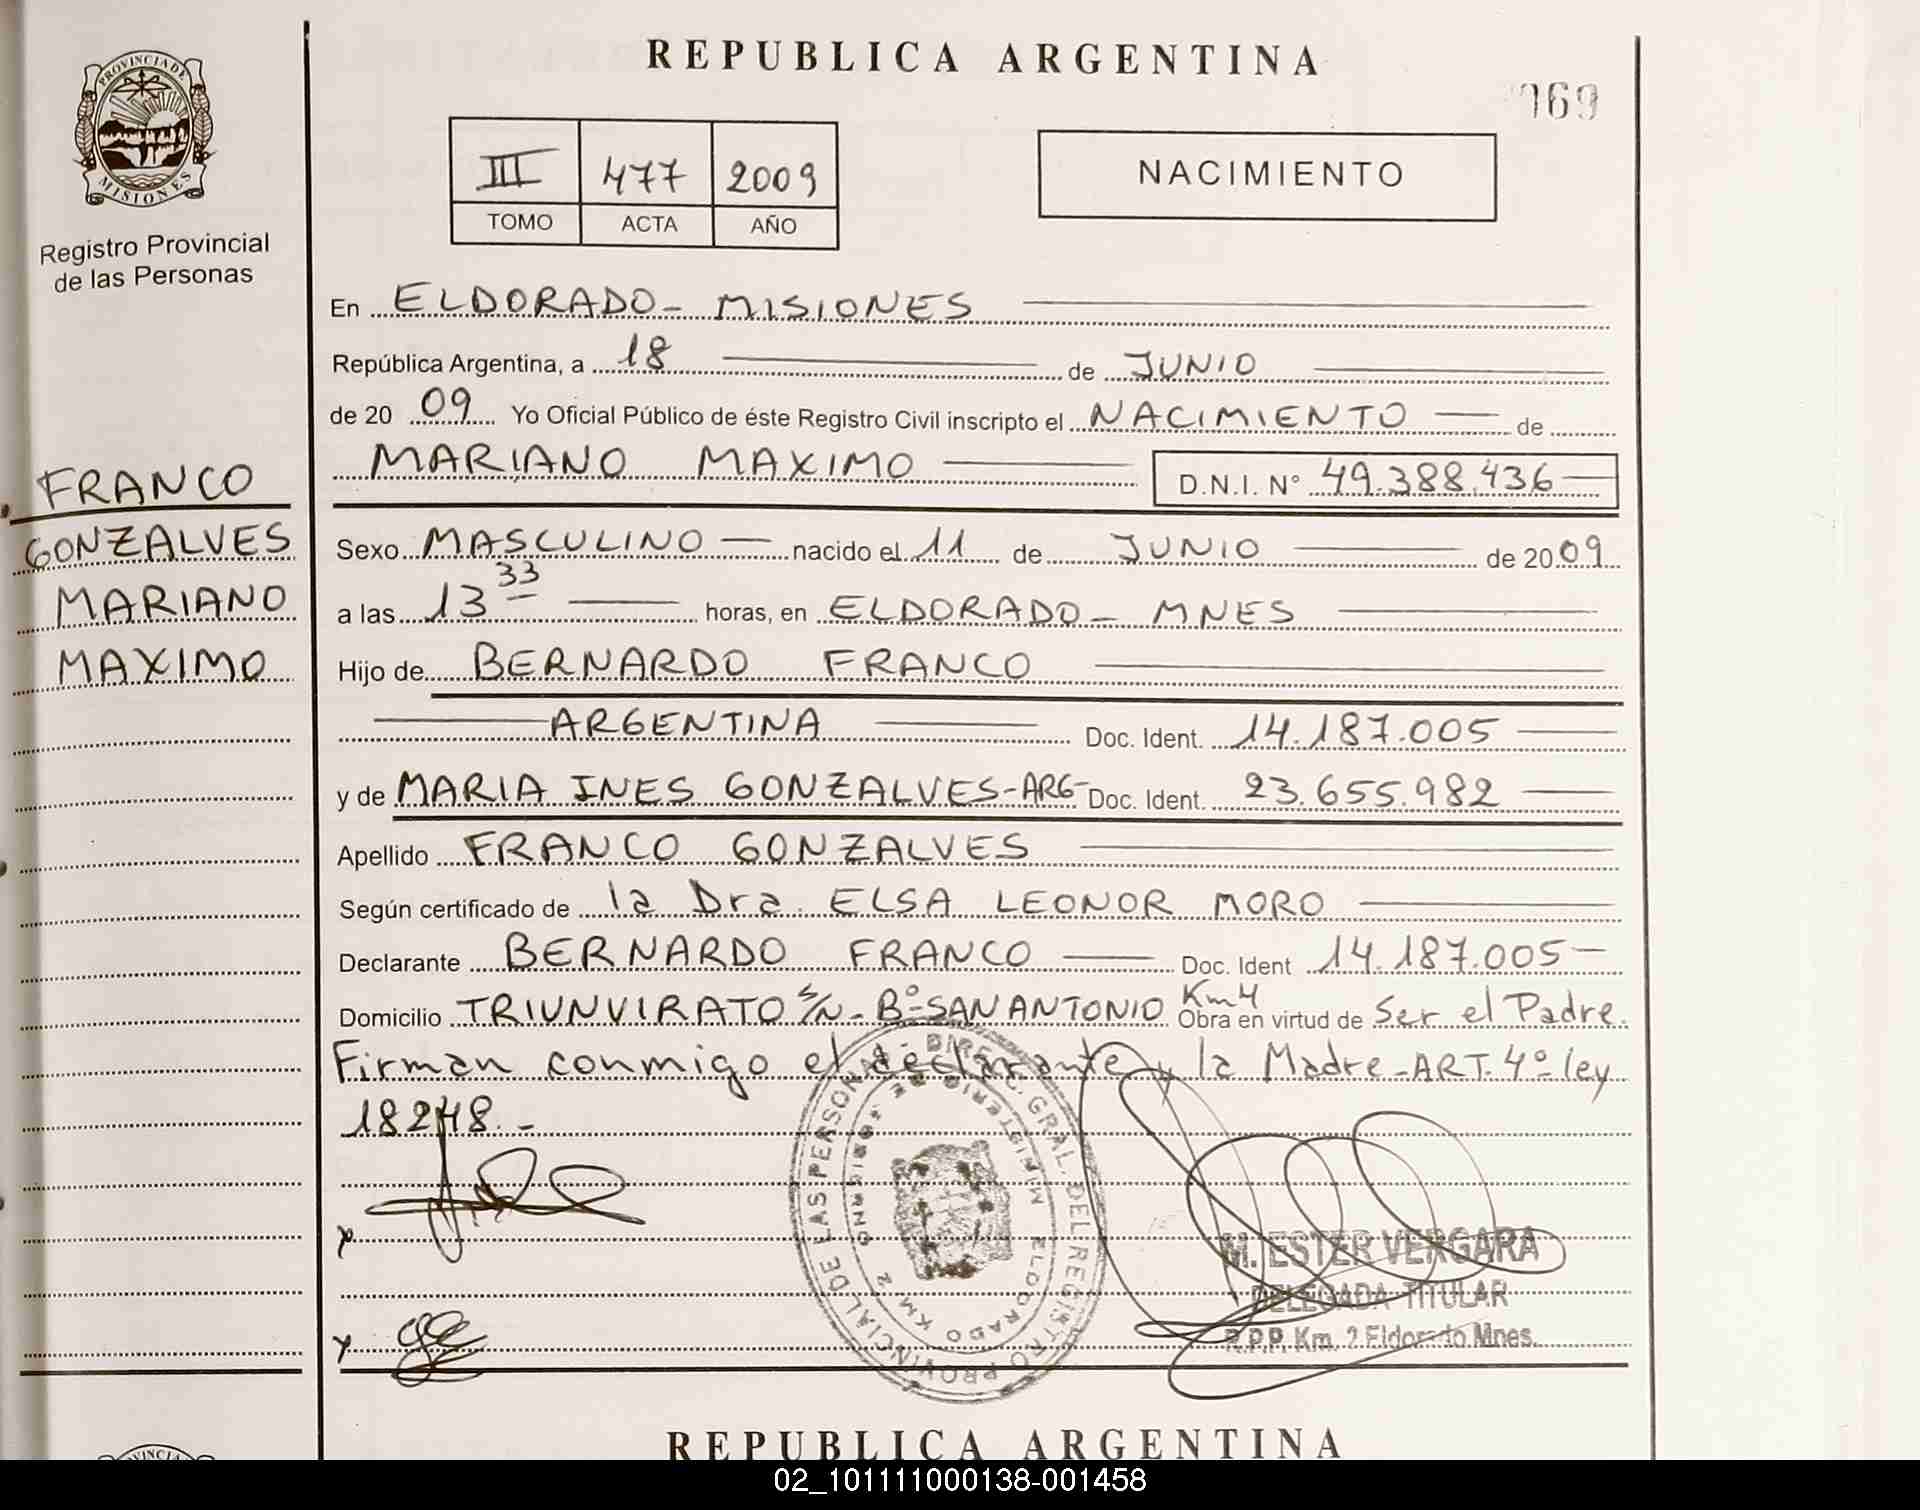 REPUBLICA ARGENTINA
069
PROVINCIA DE
MISIONES
Registro Provincial
de las Personas
III 477 2009
TOMO ACTA AÑO
NACIMIENTO
En ELDORADO - MISIONES
República Argentina, a 18 de JUNIO
de 20 09 Yo Oficial Público de éste Registro Civil inscripto el NACIMIENTO de
MARIANO MAXIMO D.N.I. N° 49.388.436
FRANCO
GONZALVES
MARIANO
MAXIMO
Sexo MASCULINO nacido el 11 de JUNIO de 2009
a las 13 33 horas, en ELDORADO - MNES
Hijo de BERNARDO FRANCO
ARGENTINA Doc. Ident. 14.187.005
y de MARIA INES GONZALVES-ARG- Doc. Ident. 23.655.982
Apellido FRANCO GONZALVES
Según certificado de la Dra. ELSA LEONOR MORO
Declarante BERNARDO FRANCO Doc. Ident 14.187.005-
Domicilio TRIUNVIRATO S/N - Bº SAN ANTONIO Km4 Obra en virtud de Ser el Padre.
Firman conmigo el declarante y la Madre - ART. 4º ley
18248.-
DIREC. GRAL. DEL REGISTRO PROVINCIAL DE LAS PERSONAS
MINISTERIO DE GOBIERNO
ELDORADO KM 2
M. ESTER VERGARA
DELEGADA TITULAR
R.P.P. Km. 2 Eldorado Mnes.
REPUBLICA ARGENTINA
02_101111000138-001458